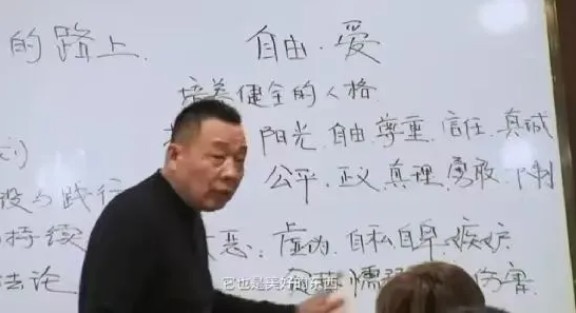 的路上. 自由·爱
培养健全的人格
阳光 自由 尊重 信任 真诚
公平 正义 真理 勇敢
设与践行
持续 恶: 虚伪 自私 自卑 嫉妒
法论 伤害
它也是美好的东西